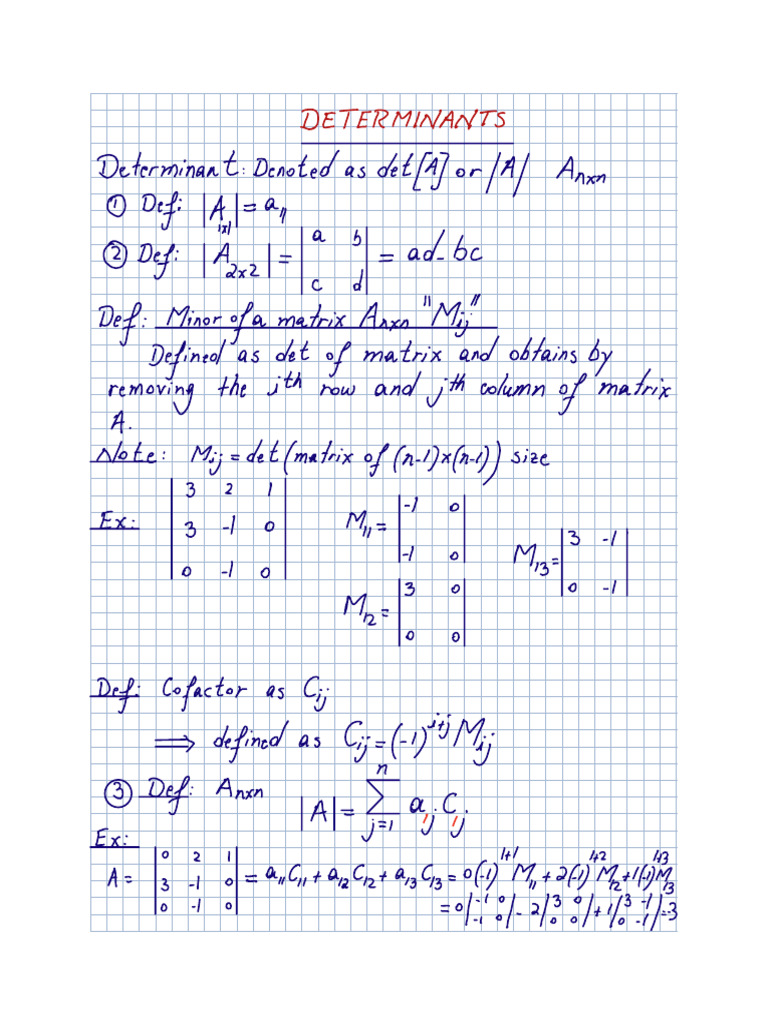 DETERMINANTS
Determinant: Denoted as det[A] or |A| Anxn
① Def: |A1x1| = a11
② Def: |A2x2| = |a b| = ad-bc
|c d|
Def: Minor of a matrix Anxn "Mij"
Defined as det of matrix and obtains by
removing the ith row and jth column of matrix
A.
Note: Mij = det(matrix of (n-1)x(n-1)) size
Ex: |3 2 1|
|3 -1 0|
|0 -1 0|
M11 = |-1 0|
|-1 0|
M12 = |3 0|
|0 0|
M13 = |3 -1|
|0 -1|
Def: Cofactor as Cij
⟹ defined as Cij = (-1)^i+j Mij
③ Def: Anxn |A| = n∑j=1 a1j C1j
Ex:
A = |0 2 1|
|3 -1 0|
|0 -1 0|
= a11C11 + a12C12 + a13C13 = 0(-1)^1+1 M11 + 2(-1)^1+2 M12 + 1(-1)^1+3 M13
= 0|-1 0; -1 0| - 2|3 0; 0 0| + 1|3 -1; 0 -1| = -3